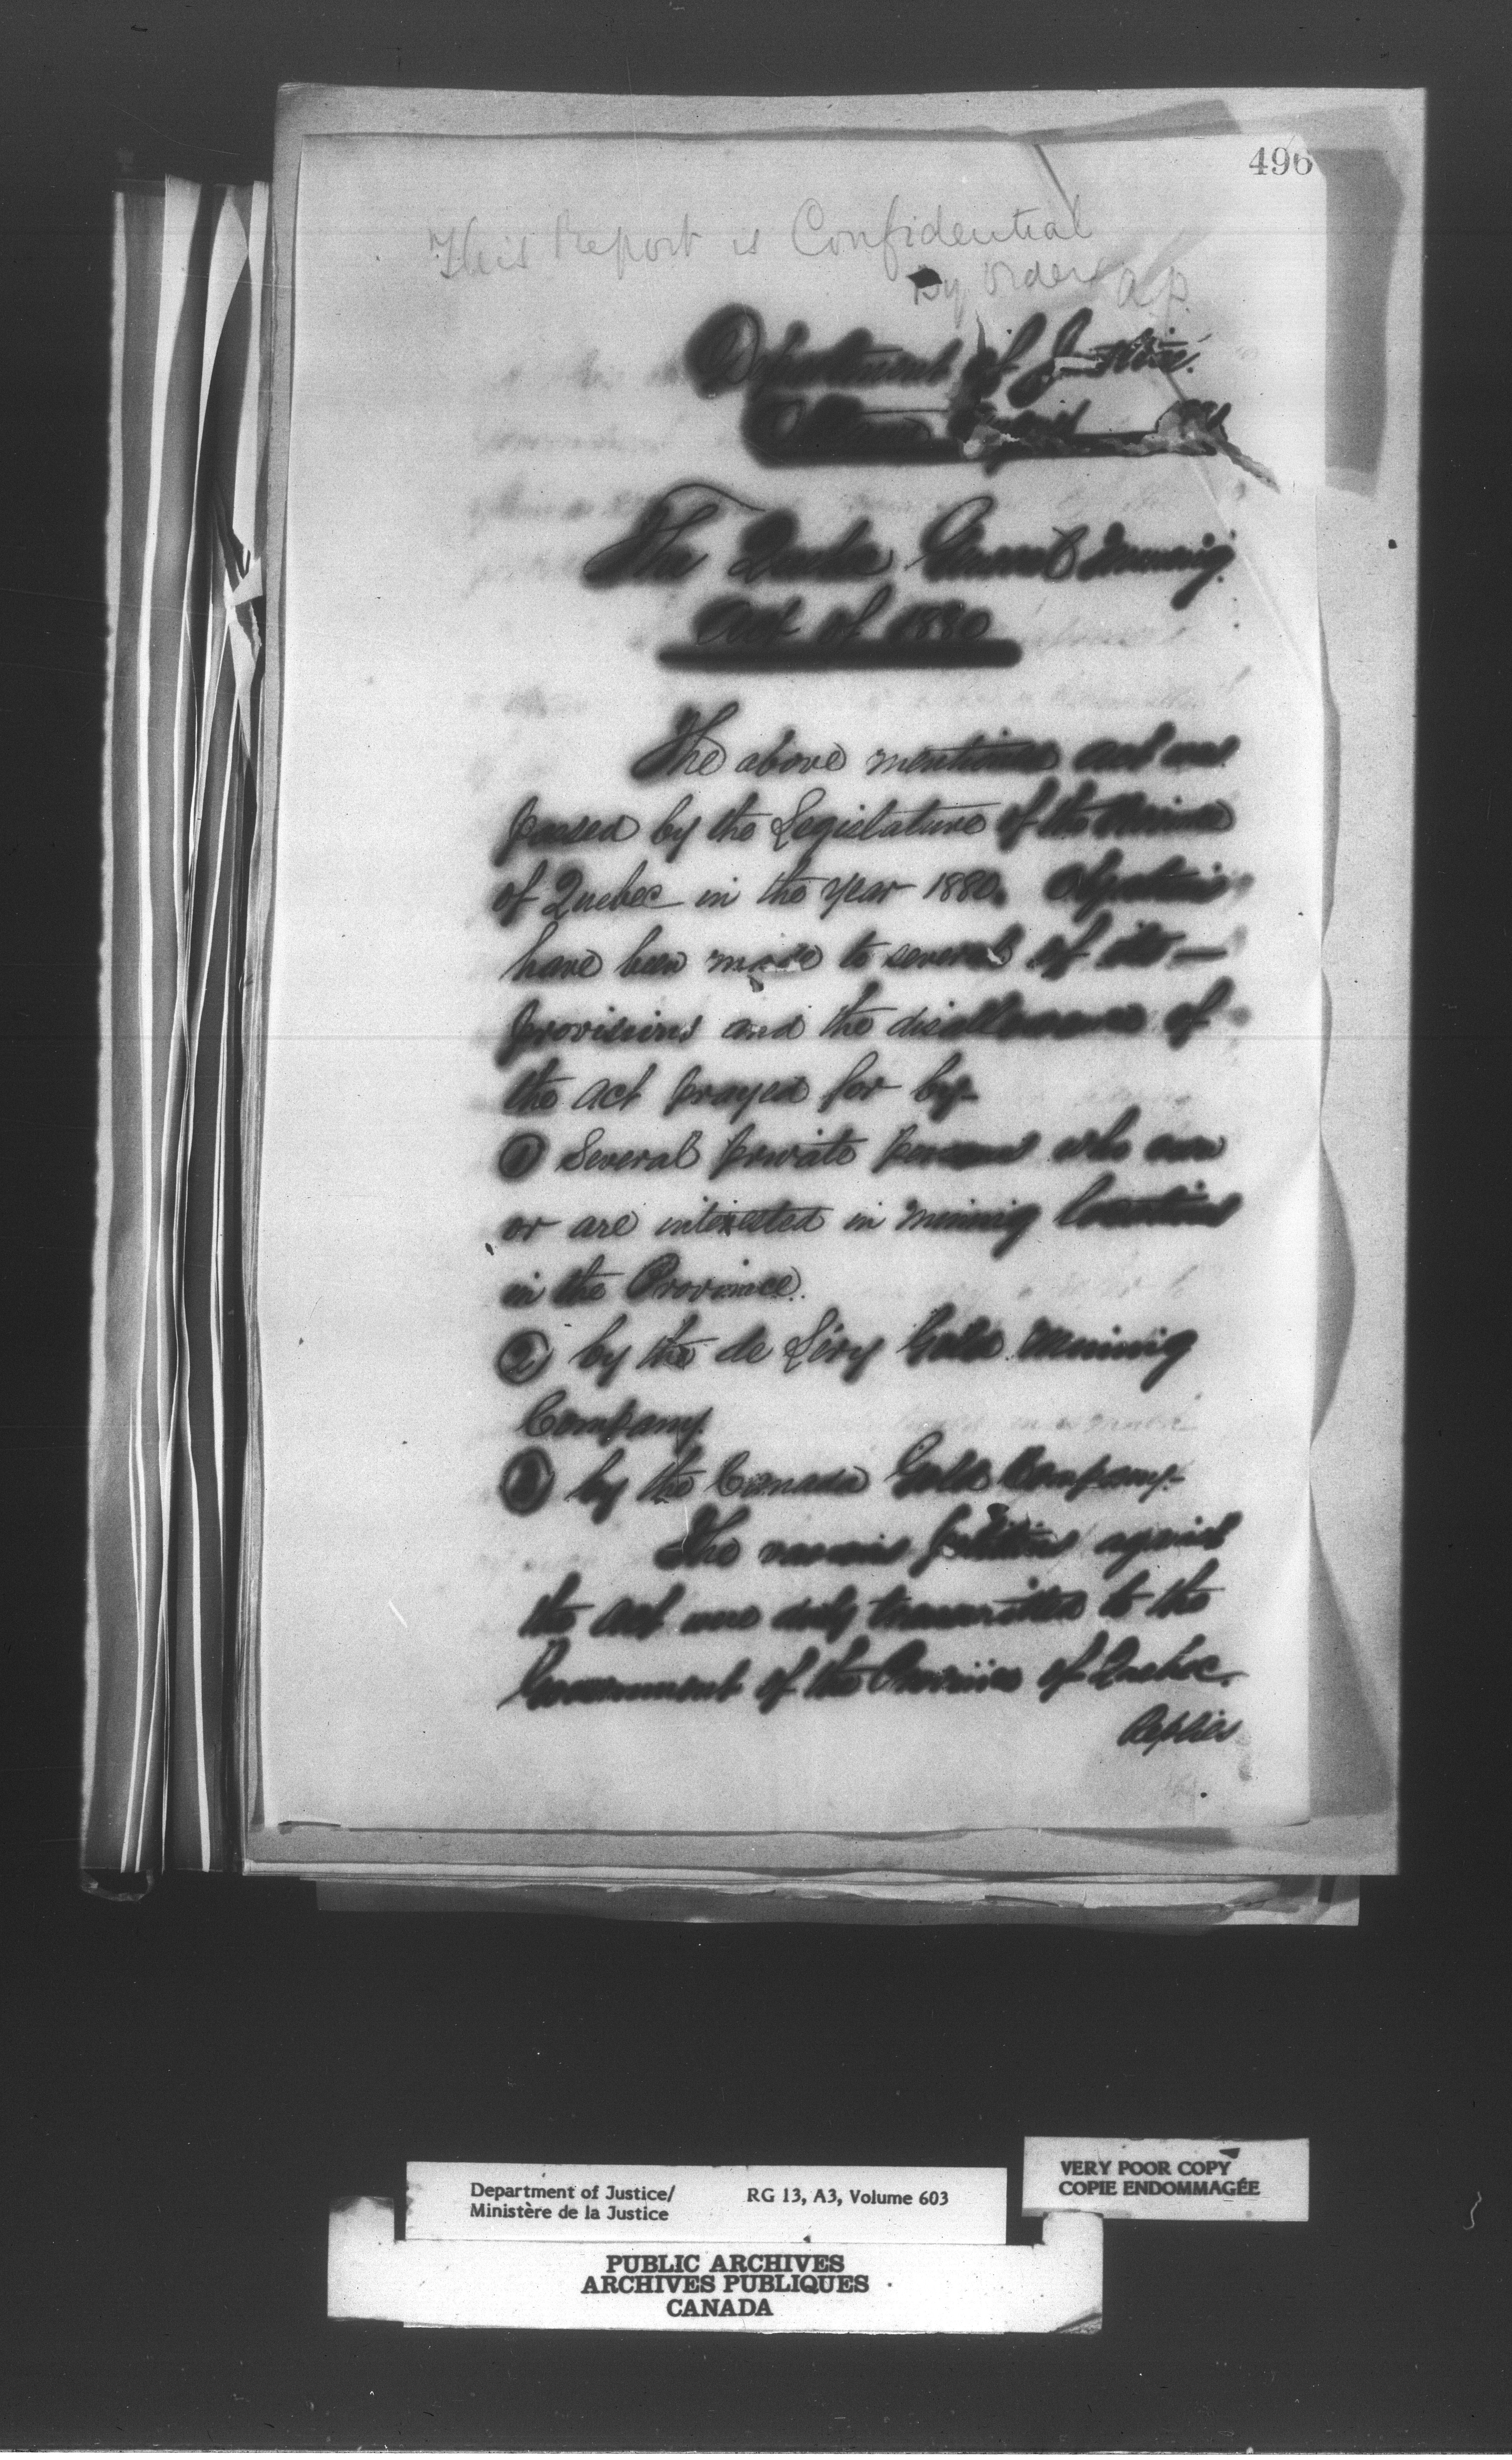 496
This Report is Confidential
By Order A P.
Department of Justice.
The Quebec General Mining
Act of 1880
The above mentioned act was
passed by the Legislature of the Province
of Quebec in the year 1880. Objections
have been made to several of its —
provisions and the disallowance of
the act prayed for by-
① Several private persons who own
or are interested in mining locations
in the Province.
② by the de Léry Gold Mining
Company
③ by the Canada Gold Company-
The various petitions against
the act were duly transmitted to the
Government of the Province of Quebec.
Replies
Department of Justice/
Ministère de la Justice
RG 13, A3, Volume 603
VERY POOR COPY
COPIE ENDOMMAGÉE
PUBLIC ARCHIVES
ARCHIVES PUBLIQUES
CANADA